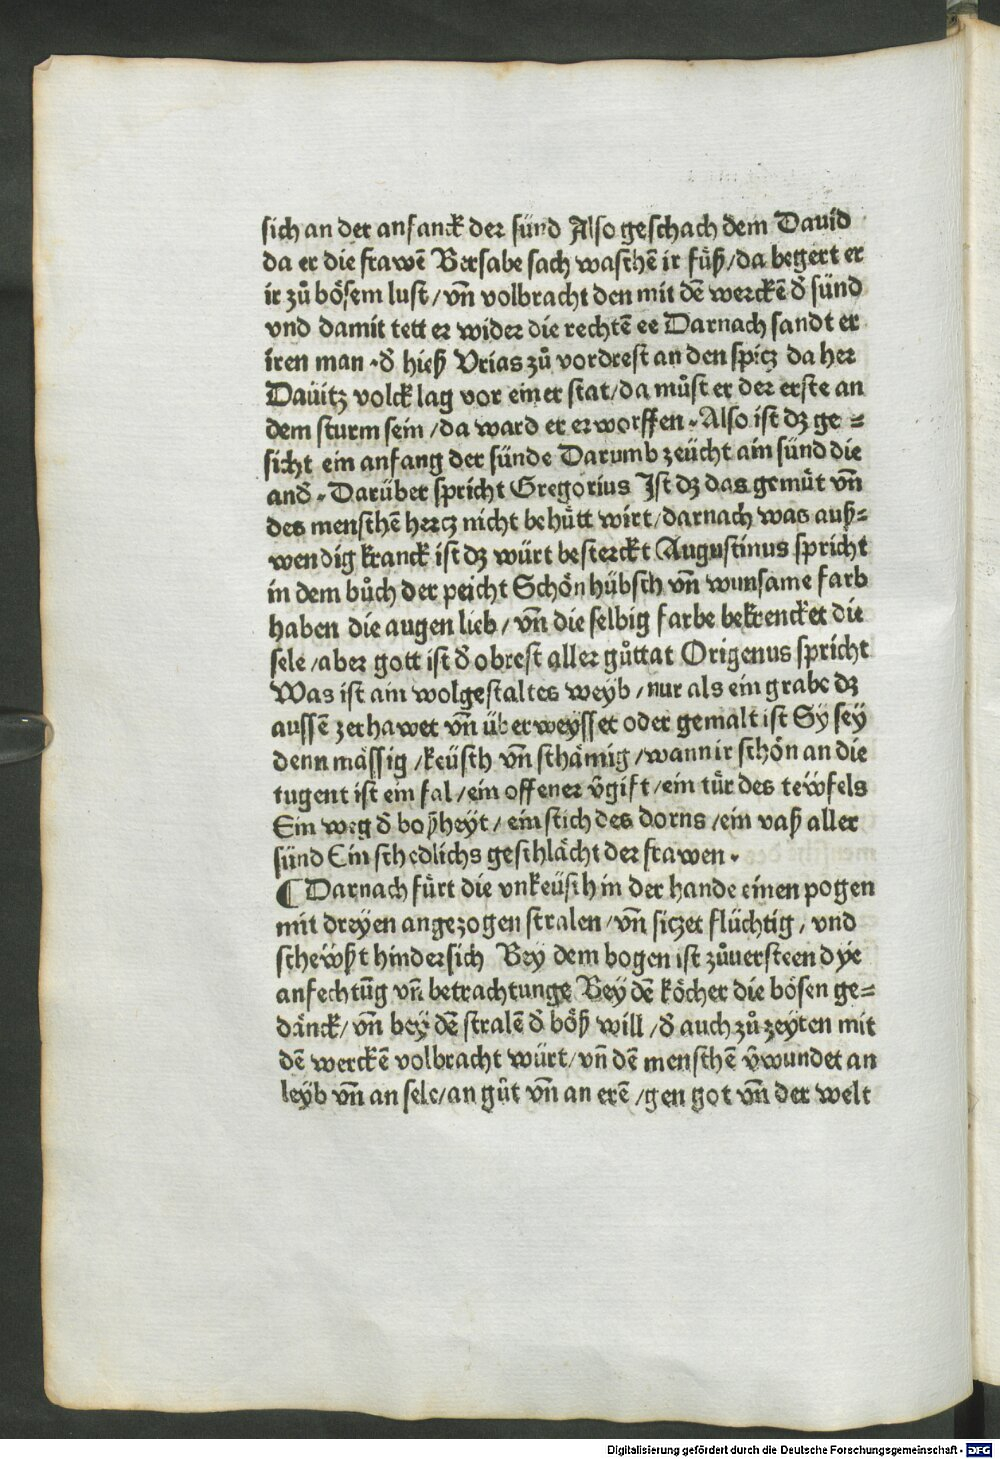 sich an der anfanck der sünd Also geschach dem Dauid
da er die frawē Bersabe sach waschē ir fuͤß/da begert er
ir zuͦ boͤsem lust/vn̄ volbracht den mit dē werckē d̄ sünd
vnd damit tett er wider die rechtē ee Darnach sandt er
iren man · d̄ hieß Vrias zuͦ vordrest an den spitz da her
Dauitz volck lag vor einer stat/da muͦst er der erste an
dem sturm sein/da ward er erworffen · Also ist dz ge⸗
sicht ein anfang der sünde Darumb zeücht ain sünd die
and̄ · Darüber spricht Gregorius Ist dz das gemuͤt vn̄
des menschē hertz nicht behuͤtt wirt/darnach was auß⸗
wendig kranck ist dz würt besterckt Augustinus spricht
in dem buͦch der peicht Schoͤn hübsch vn̄ wunsame farb
haben die augen lieb/vn̄ die selbig farbe bekrencket die
sele/aber gott ist d̄ obrest aller guͦttat Origenus spricht
Was ist ain wolgestaltes weyb/nur als ein grabe dz
aussē zerhawet vn̄ überweysset oder gemalt ist Sy sey
denn maͤssig/keüsch vn̄ schaͤmig/wann ir schoͤn an die
tugent ist ein fal/ein offener v̄gift/ein tür des tewfels
Ein weg d̄ boßheyt/ein stich des dorns/ein vaß aller
sünd Ein schedlichs geschlaͤcht der frawen ·
¶ Darnach fuͤrt die vnkeüsch in der hande einen pogen
mit dreyen angezogen stralen/vn̄ sitzet flüchtig/vnd
schewßt hindersich Bey dem bogen ist zuͦuersteen dye
anfechtūg vn̄ betrachtunge Bey dē koͤcher die boͤsen ge⸗
daͤnck/vn̄ bey dē stralē d̄ boͤß will/d̄ auch zuͦ zeyten mit
dē werckē volbracht würt/vn̄ dē menschē v̄wundet an
leyb vn̄ an sele/an guͦt vn̄ an erē/gen got vn̄ der welt
Digitalisierung gefördert durch die Deutsche Forschungsgemeinschaft - DFG